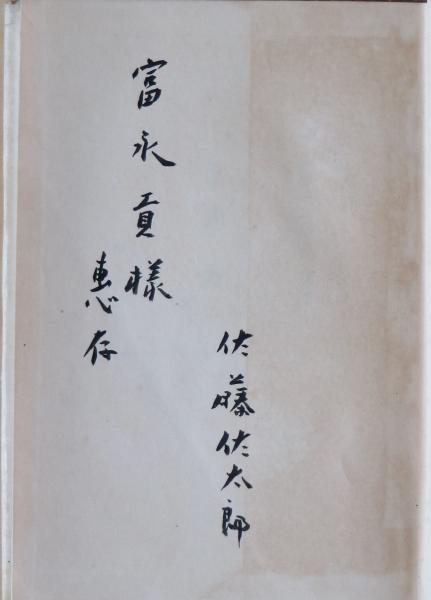 佐藤佐太郎
富永貢様
恵存